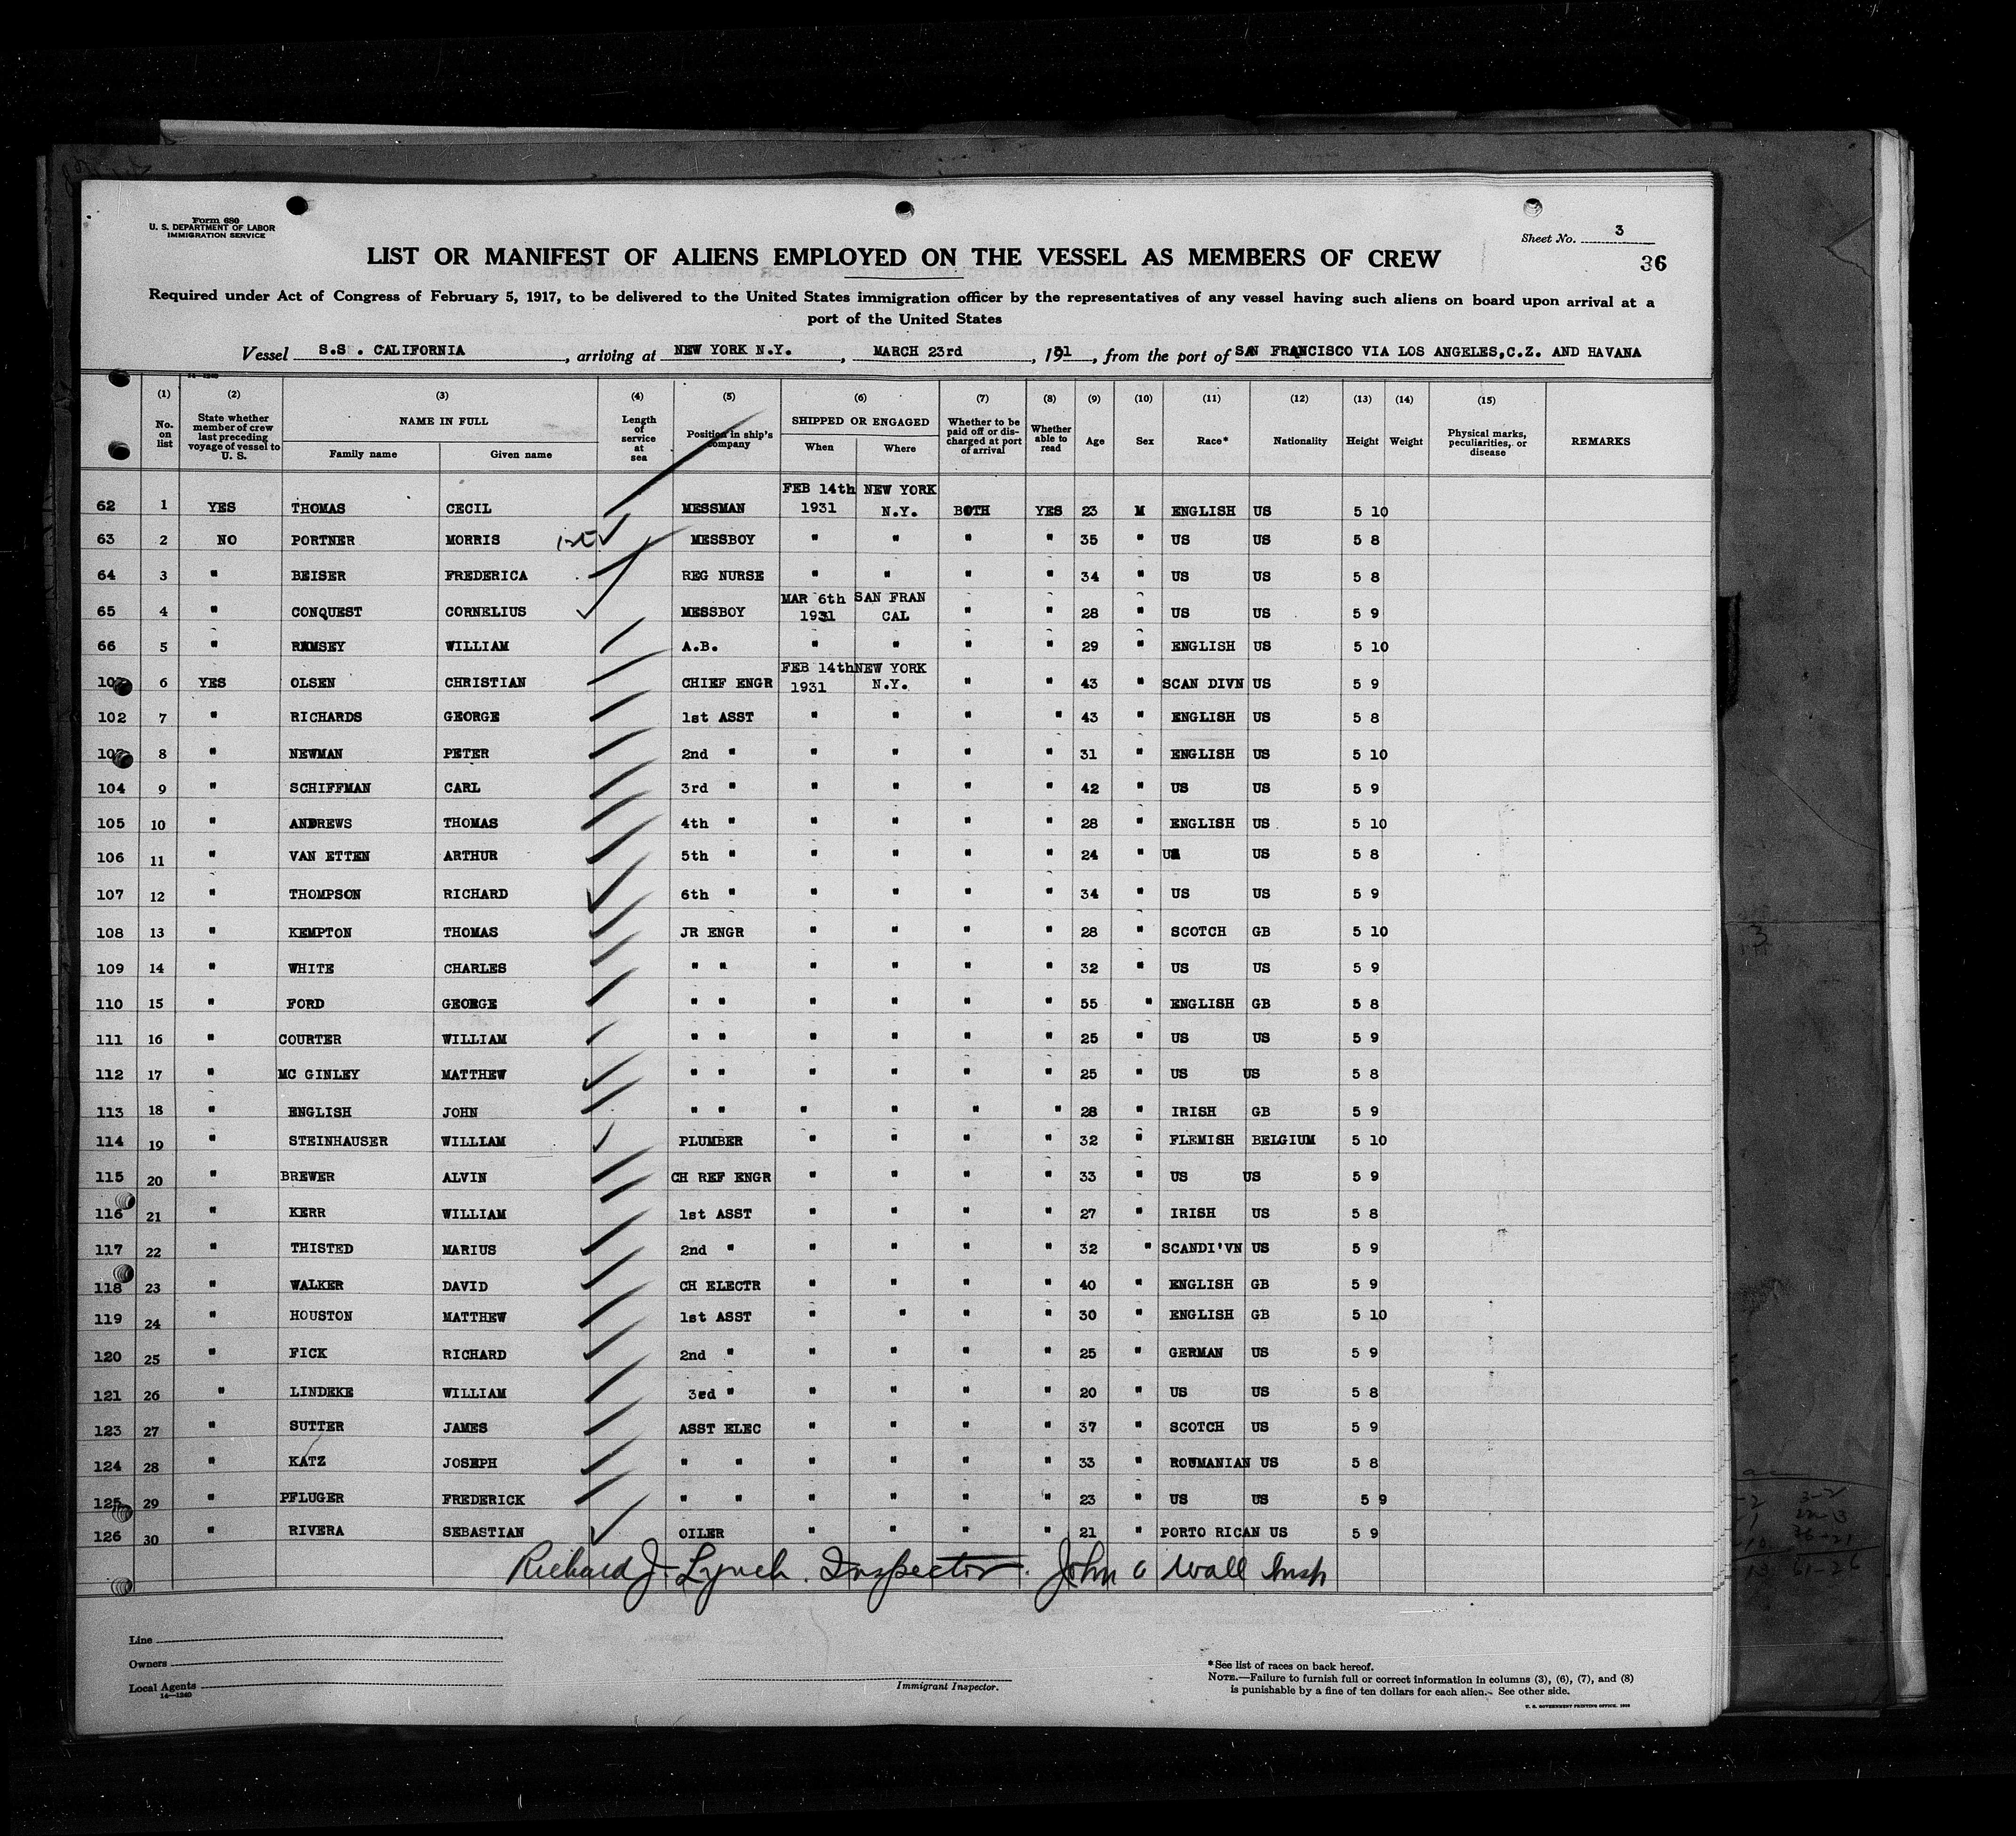 Form 680
U. S. DEPARTMENT OF LABOR
IMMIGRATION SERVICE
Sheet No. 3
36
LIST OR MANIFEST OF ALIENS EMPLOYED ON THE VESSEL AS MEMBERS OF CREW
Required under Act of Congress of February 5, 1917, to be delivered to the United States immigration officer by the representatives of any vessel having such aliens on board upon arrival at a
port of the United States
Vessel S.S. CALIFORNIA, arriving at NEW YORK N.Y., MARCH 23rd, 191, from the port of SAN FRANCISCO VIA LOS ANGELES,C.Z. AND HAVANA
14-1240
(1) No. on list (2) State whether member of crew last preceding voyage of vessel to U. S. (3) NAME IN FULL Family name Given name (4) Length of service at sea (5) Position in ship's company (6) SHIPPED OR ENGAGED When Where (7) Whether to be paid off or discharged at port of arrival (8) Whether able to read (9) Age (10) Sex (11) Race* (12) Nationality (13) Height (14) Weight (15) Physical marks, peculiarities, or disease REMARKS
62 1 YES THOMAS CECIL MESSMAN FEB 14th 1931 NEW YORK N.Y. BOTH YES 23 M ENGLISH US 5 10
63 2 NO PORTNER MORRIS MESSBOY " " " " 35 " US US 5 8
64 3 " BEISER FREDERICA REG NURSE " " " " 34 " US US 5 8
65 4 " CONQUEST CORNELIUS MESSBOY MAR 6th 1931 SAN FRAN CAL " " 28 " US US 5 9
66 5 " RAMSEY WILLIAM A.B. " " " " 29 " ENGLISH US 5 10
6 YES OLSEN CHRISTIAN CHIEF ENGR FEB 14th 1931 NEW YORK N.Y. " " 43 " SCAN DIVN US 5 9
102 7 " RICHARDS GEORGE 1st ASST " " " " 43 " ENGLISH US 5 8
8 " NEWMAN PETER 2nd " " " " " 31 " ENGLISH US 5 10
104 9 " SCHIFFMAN CARL 3rd " " " " " 42 " US US 5 9
105 10 " ANDREWS THOMAS 4th " " " " " 28 " ENGLISH US 5 10
106 11 " VAN ETTEN ARTHUR 5th " " " " " 24 " US US 5 8
107 12 " THOMPSON RICHARD 6th " " " " " 34 " US US 5 9
108 13 " KEMPTON THOMAS JR ENGR " " " " 28 " SCOTCH GB 5 10
109 14 " WHITE CHARLES " " " " " " 32 " US US 5 9
110 15 " FORD GEORGE " " " " " " 55 " ENGLISH GB 5 8
111 16 " COURTER WILLIAM " " " " " " 25 " US US 5 9
112 17 " MC GINLEY MATTHEW " " " " " " 25 " US US 5 8
113 18 " ENGLISH JOHN " " " " " " 28 " IRISH GB 5 9
114 19 " STEINHAUSER WILLIAM PLUMBER " " " " 32 " FLEMISH BELGIUM 5 10
115 20 " BREWER ALVIN CH REF ENGR " " " " 33 " US US 5 9
116 21 " KERR WILLIAM 1st ASST " " " " 27 " IRISH US 5 8
117 22 " THISTED MARIUS 2nd " " " " " 32 " SCANDI'VN US 5 9
118 23 " WALKER DAVID CH ELECTR " " " " 40 " ENGLISH GB 5 9
119 24 " HOUSTON MATTHEW 1st ASST " " " " 30 " ENGLISH GB 5 10
120 25 " FICK RICHARD 2nd " " " " " 25 " GERMAN US 5 9
121 26 " LINDEKE WILLIAM 3ed " " " " " 20 " US US 5 8
123 27 " SUTTER JAMES ASST ELEC " " " " 37 " SCOTCH US 5 9
124 28 " KATZ JOSEPH " " " " " " 33 " ROUMANIAN US 5 8
125 29 " PFLUGER FREDERICK " " " " " " 23 " US US 5 9
126 30 " RIVERA SEBASTIAN OILER " " " " 21 " PORTO RICAN US 5 9
Richard J. Lynch. Inspector. John C Wall Insp
Line
Owners
Local Agents
14-1240
Immigrant Inspector.
*See list of races on back hereof.
NOTE.—Failure to furnish full or correct information in columns (3), (6), (7), and (8)
is punishable by a fine of ten dollars for each alien. See other side.
U. S. GOVERNMENT PRINTING OFFICE